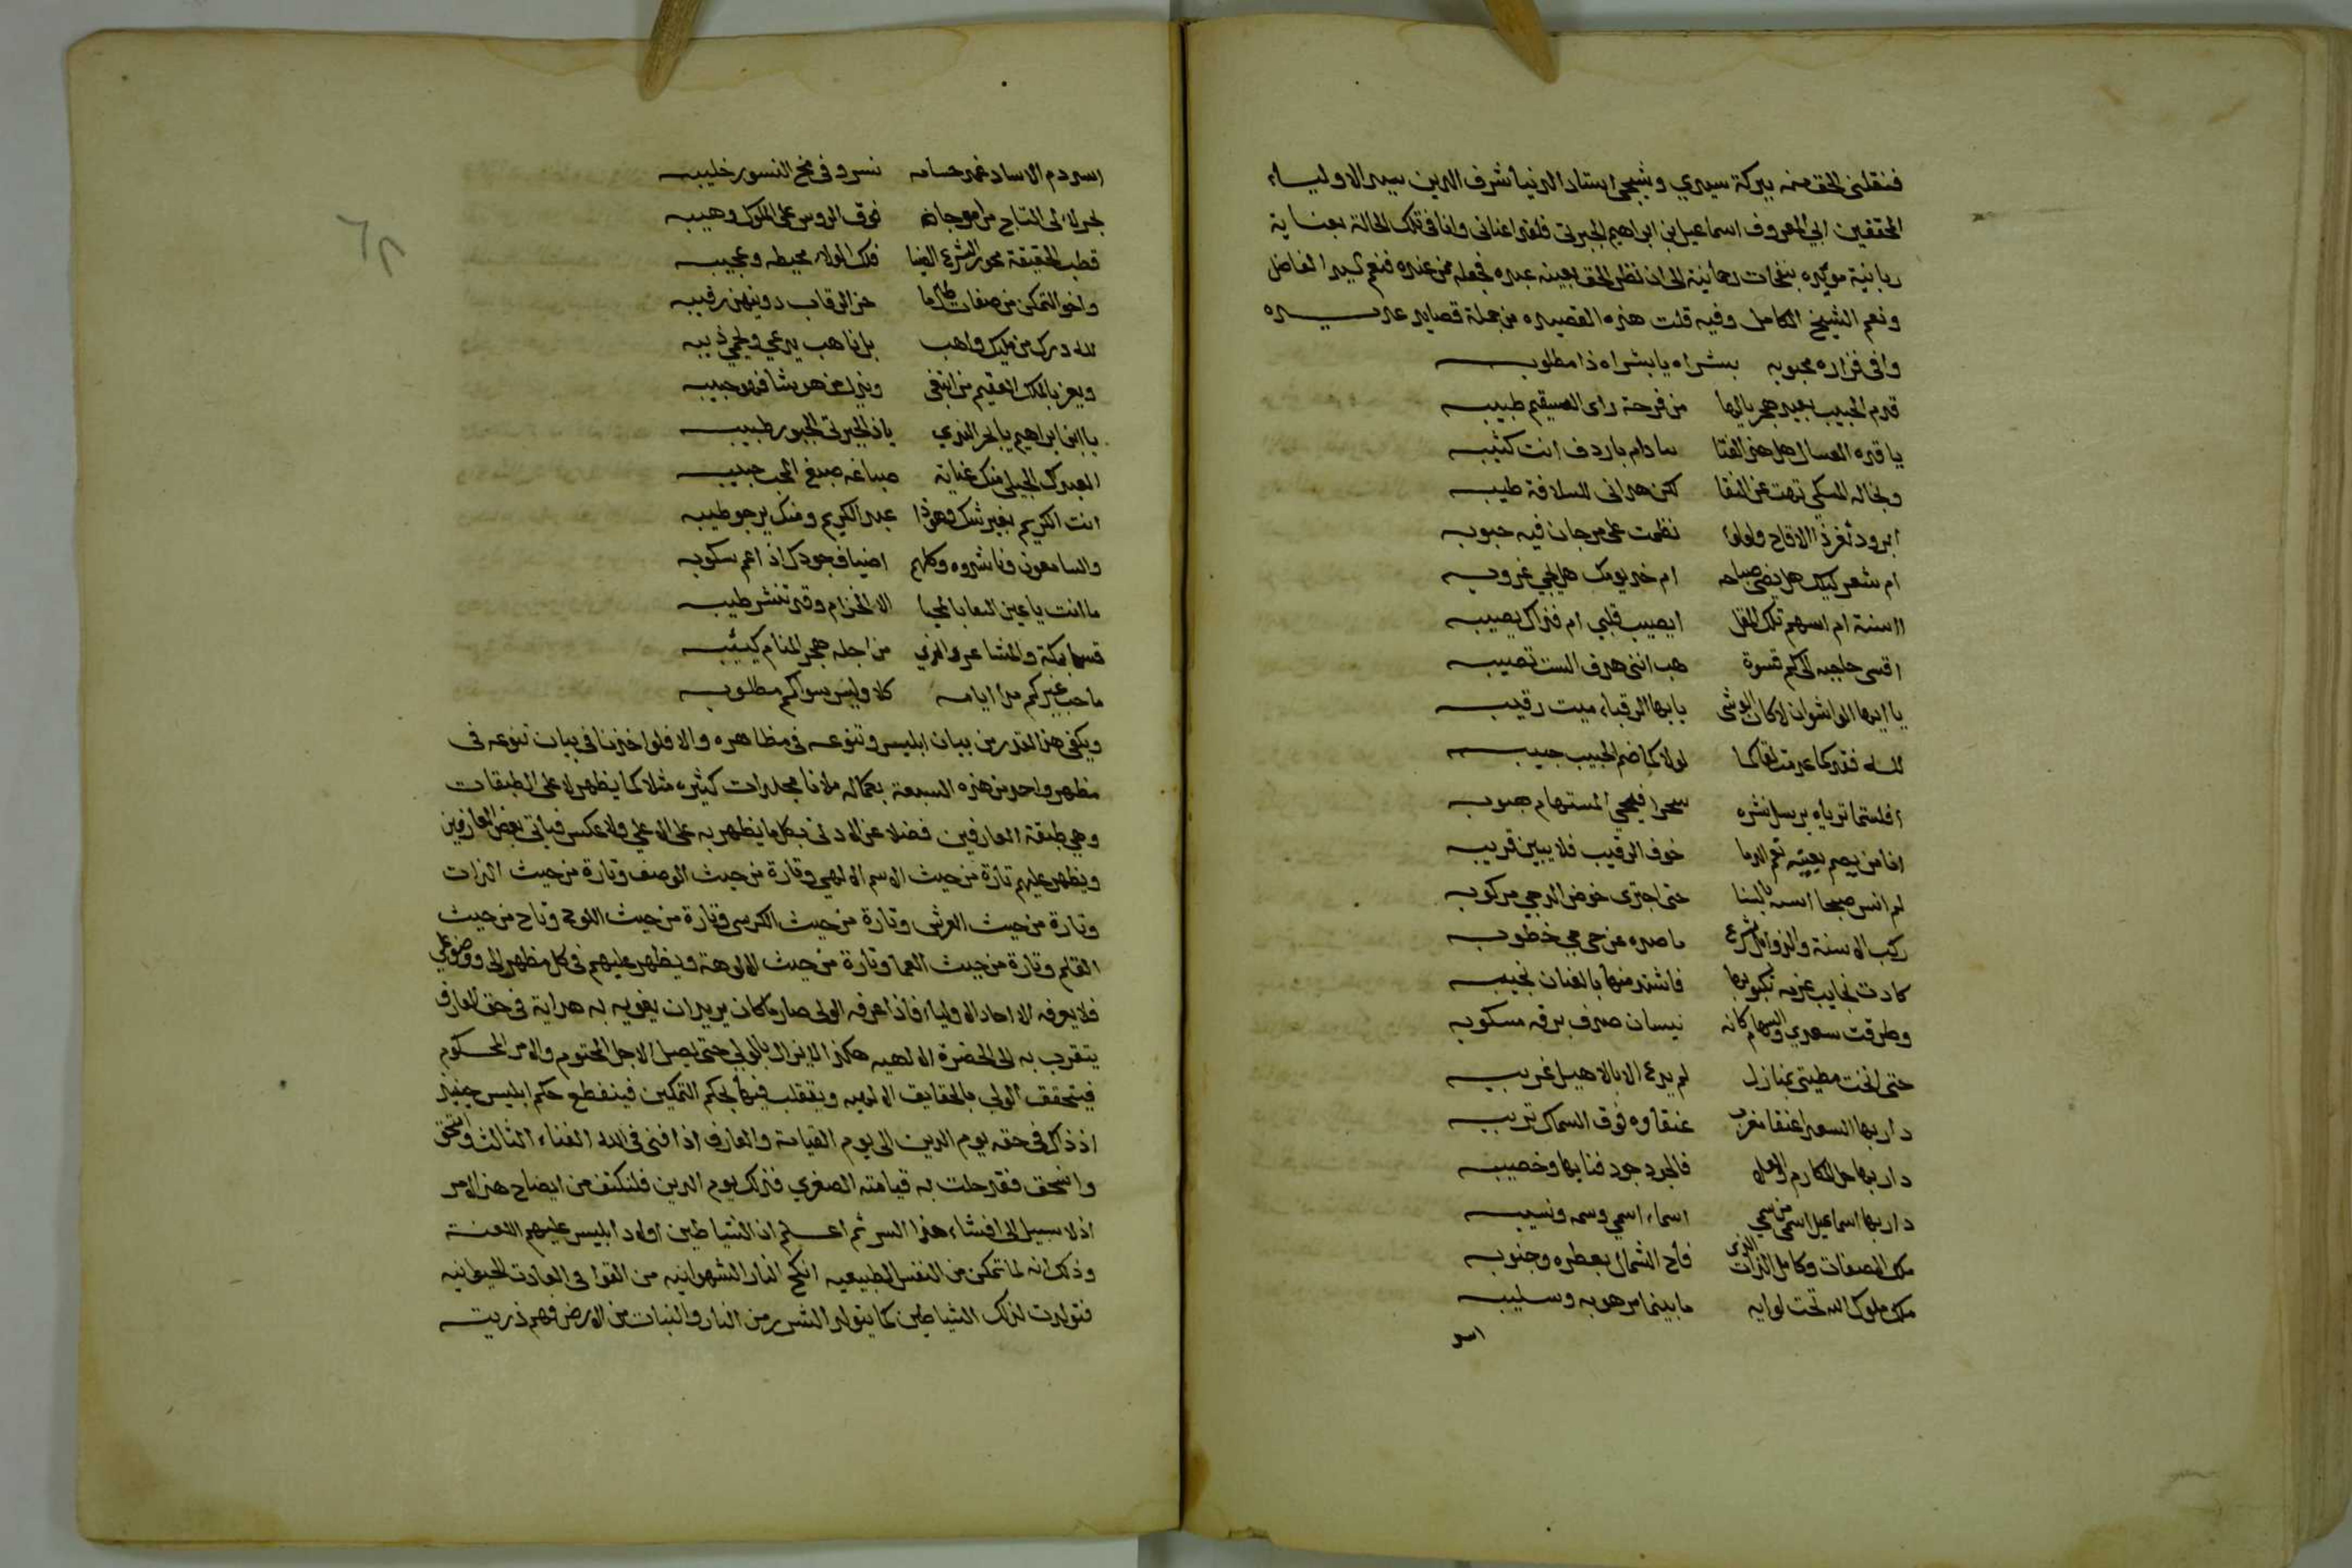 فنقلني الحق منه ببركة سيدي وشيخي استاد الدنيا شرف الدين سيد الاولياء
المحققين ابي المعروف اسماعيل ابن ابراهيم الجبرتي فلقد اغناني وانا في تلك الحالة بعناية
ربانية مويده بنفحات رحمانية الى ان نظر الحق بعينه عبده فجعله ممن عنده فنعم السيد الفاضل
ونعم الشيخ الكامل وفيه قلت هذه القصيده من جملة قصايد عديده
وافى فزاره محبوبه بشراه يا بشراه ذا مطلوبه
قدم الحبيب بعيد هجر يالها من فرحة داى السقيم طبيبه
يا قده العسال هل هذا الفتا ما دام يا ردف انت كثيبه
وبخاله المسكي تهت عن النقا لكن هداني للسلافة طيبه
ابرود ثغر ذا الاقاح ولولوء نظمت على مرجان فيه حبوبه
ام شعر ليلك هل يضى صباحه ام خد يومك هل يجي غروبه
ااسنة ام اسهم تلك المقل ايصيب قلبي ام فذاك يصيبه
اقسى حاجبه الى كم قسوة هب انني هدف الست تصيبه
يا ايها الواشون لا كان الوشى يا ايها الرقباء ميت رقيبه
لله فقد كما عدمت لقاكما لولا كما ضم الحبيب حبيبه
افلستما ترياه يرسل نشره سحرا فيحي المستهام هبوبه
خوف الرقيب فلا يبين قريبه
لم انس صبحا حتى اجترى خوض الدجي مركوبه
ركب الاسنة والذوابل شرع ما صده عن حي مي خطوبه
كادت نجايب عزمه تكبو بها فاشتد منها بالعنان نجيبه
وطرقت سعدي والسهام كانه نيسان صدف برقه مسكوبه
حتى انخت مطيتي بمنازل لم يدع الا بالاهيل غريبه
دار بها السعدا عنقا مغرب عنقاوه فوق السماك تريبه
دار بها حل المكارم والعلى فالجود جود فنايها وخصيبه
دار بها اسماعيل اسمى من سمي اسماء اسمي وسمه ونسيبه
ملك الصفات وكامل الذات الذي فاح الشمال بعطره وجنوبه
ملك ملوك الله تحت لوايه ما بينما مرهوبه وسليبه
اسد
اسد دم الاساد غمد حسامه نسر وفى مخ النسور خليبه
بحر لالى التاج من امواجه فوق الروس على الملوك وهيبه
قطب الحقيقة محور الشرع الضيا فلك الولاء محيطه وعجيبه
واخو التمكن من صفات طالما حز الرقاب دونهن رقيبه
لله درك من مليك واهب بل ناهب يدعي ويحي ذيبه
ويعز بالملك العقيم من ابتغى ويذل من هو شا فهو حبيبه
يا ابن ابراهيم يا بحر الندي ياذا الجبرتي الجبور طبيبه
العبدك الجيلي منك عناية صباغه صبغ المحب حبيبه
انت الكريم بغير شك وهو ذا عبد الكريم ومنك يرجو طيبه
والسامعون وناشدوه وكلهم اضياف جودك اذ اعم سكوبه
ما انت يا عين النقا بالحيا الا الخزام وقد تنشر طيبه
قسما بمكة والمشاعر والذي من اجله هجر المنام كيئبه
ما حب غيركم مدا ايامه كلا وليس سواكم مطلوبه
ويكفي هذا القدر من بيان ابليس وتنوعه في مظاهره والا فلو اخذنا في بيان تنوعه في
مظهر واحد من هذه السبعة بكماله ملانا مجلدات كثيره مثلا كما يظهر لاعلى الطبقات
وهي طبقة العارفين فضلا عن الادنى بكل ما يظهر به على الاعلي ولا عكس فياتي بعض العارفين
ويظهر عليهم تارة من حيث الاسم الالهي وتارة من حيث الوصف وتارة من حيث الذات
وتارة من حيث العرش وتارة من حيث الكرسي وتارة من حيث اللوح وتارة من حيث
القلم وتارة من حيث العما وتارة من حيث الالوهة ويظهر عليهم في كل مظهر الهي ووصف علي
فلا يعرفه الا احاد الاولياء فاذا عرفه الولي صار ما كان يريد ان يغويه به هداية في حق العارف
يتقرب به الى الحضرة الالهيه هكذا لا يزال بالولي حتى يصل الاجل المحتوم والامر المحكوم
فيتحقق الولي بالحقايق الالهيه ويتقلب فيها بحكم التمكين فينقطع حكم ابليس حينيذ
اذ ذاك في حقه يوم الدين الى يوم القيامة والعارف اذا فنى في الله الفناء الثالث وانمحق
وانسحق فقد حلت به قيامته الصغري فذلك يوم الدين فلنكتف من ايضاح هذا الامر
اذ لا سبيل الى افشاء هذا السر ثم اعلم ان الشياطين اولاد ابليس عليهم اللعنة
وذلك انه لما تمكن من النفس الطبيعيه انكح النار الشهوانيه من الفوا في العادت الحيوانيه
فتولدت لذلك الشياطين كما يتولد الشرر من النار والنبات من الارض فهم ذريته